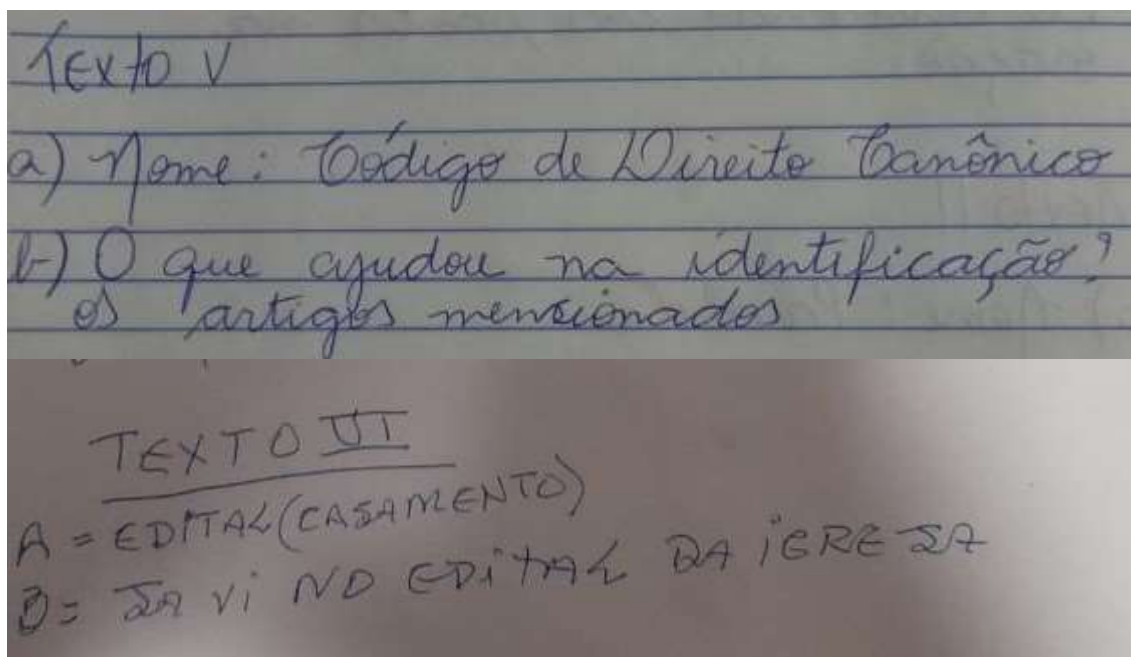 Texto V
a) Nome: Código de Direito Canônico
b) O que ajudou na identificação?
os artigos mencionados
TEXTO VI
A = EDITAL (CASAMENTO)
B = JA Vi NO EDiTAL DA iGREJA